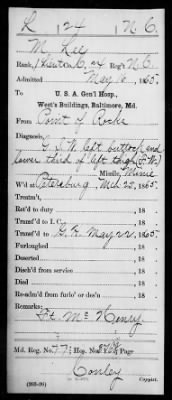 L 24 N. C.
M. Lee
Rank, Co. 24 Reg't N.C.
Admitted May 16, 1865.
To U. S. A. Gen'l Hosp.,
West's Buildings, Baltimore, Md.
From Point of Rocks
Diagnosis, G.S.W. left buttock and
lower third of left thigh (F.W.)
Missile, Minie
W'd at Petersburg, Mch 25, 1865.
Treatm't,
Ret'd to duty , 18 .
Transf'd to I. C. , 18 .
Transf'd to G.H. May 22, 1865.
Furloughed , 18 .
Deserted , 18 .
Disch'd from service , 18 .
Died , 18 .
Re-adm'd from furlo' or des'n , 18 .
Remarks:
Ft. McHenry
Md. Reg. No. 77; Hos. No. Page
Conley
Copyist.